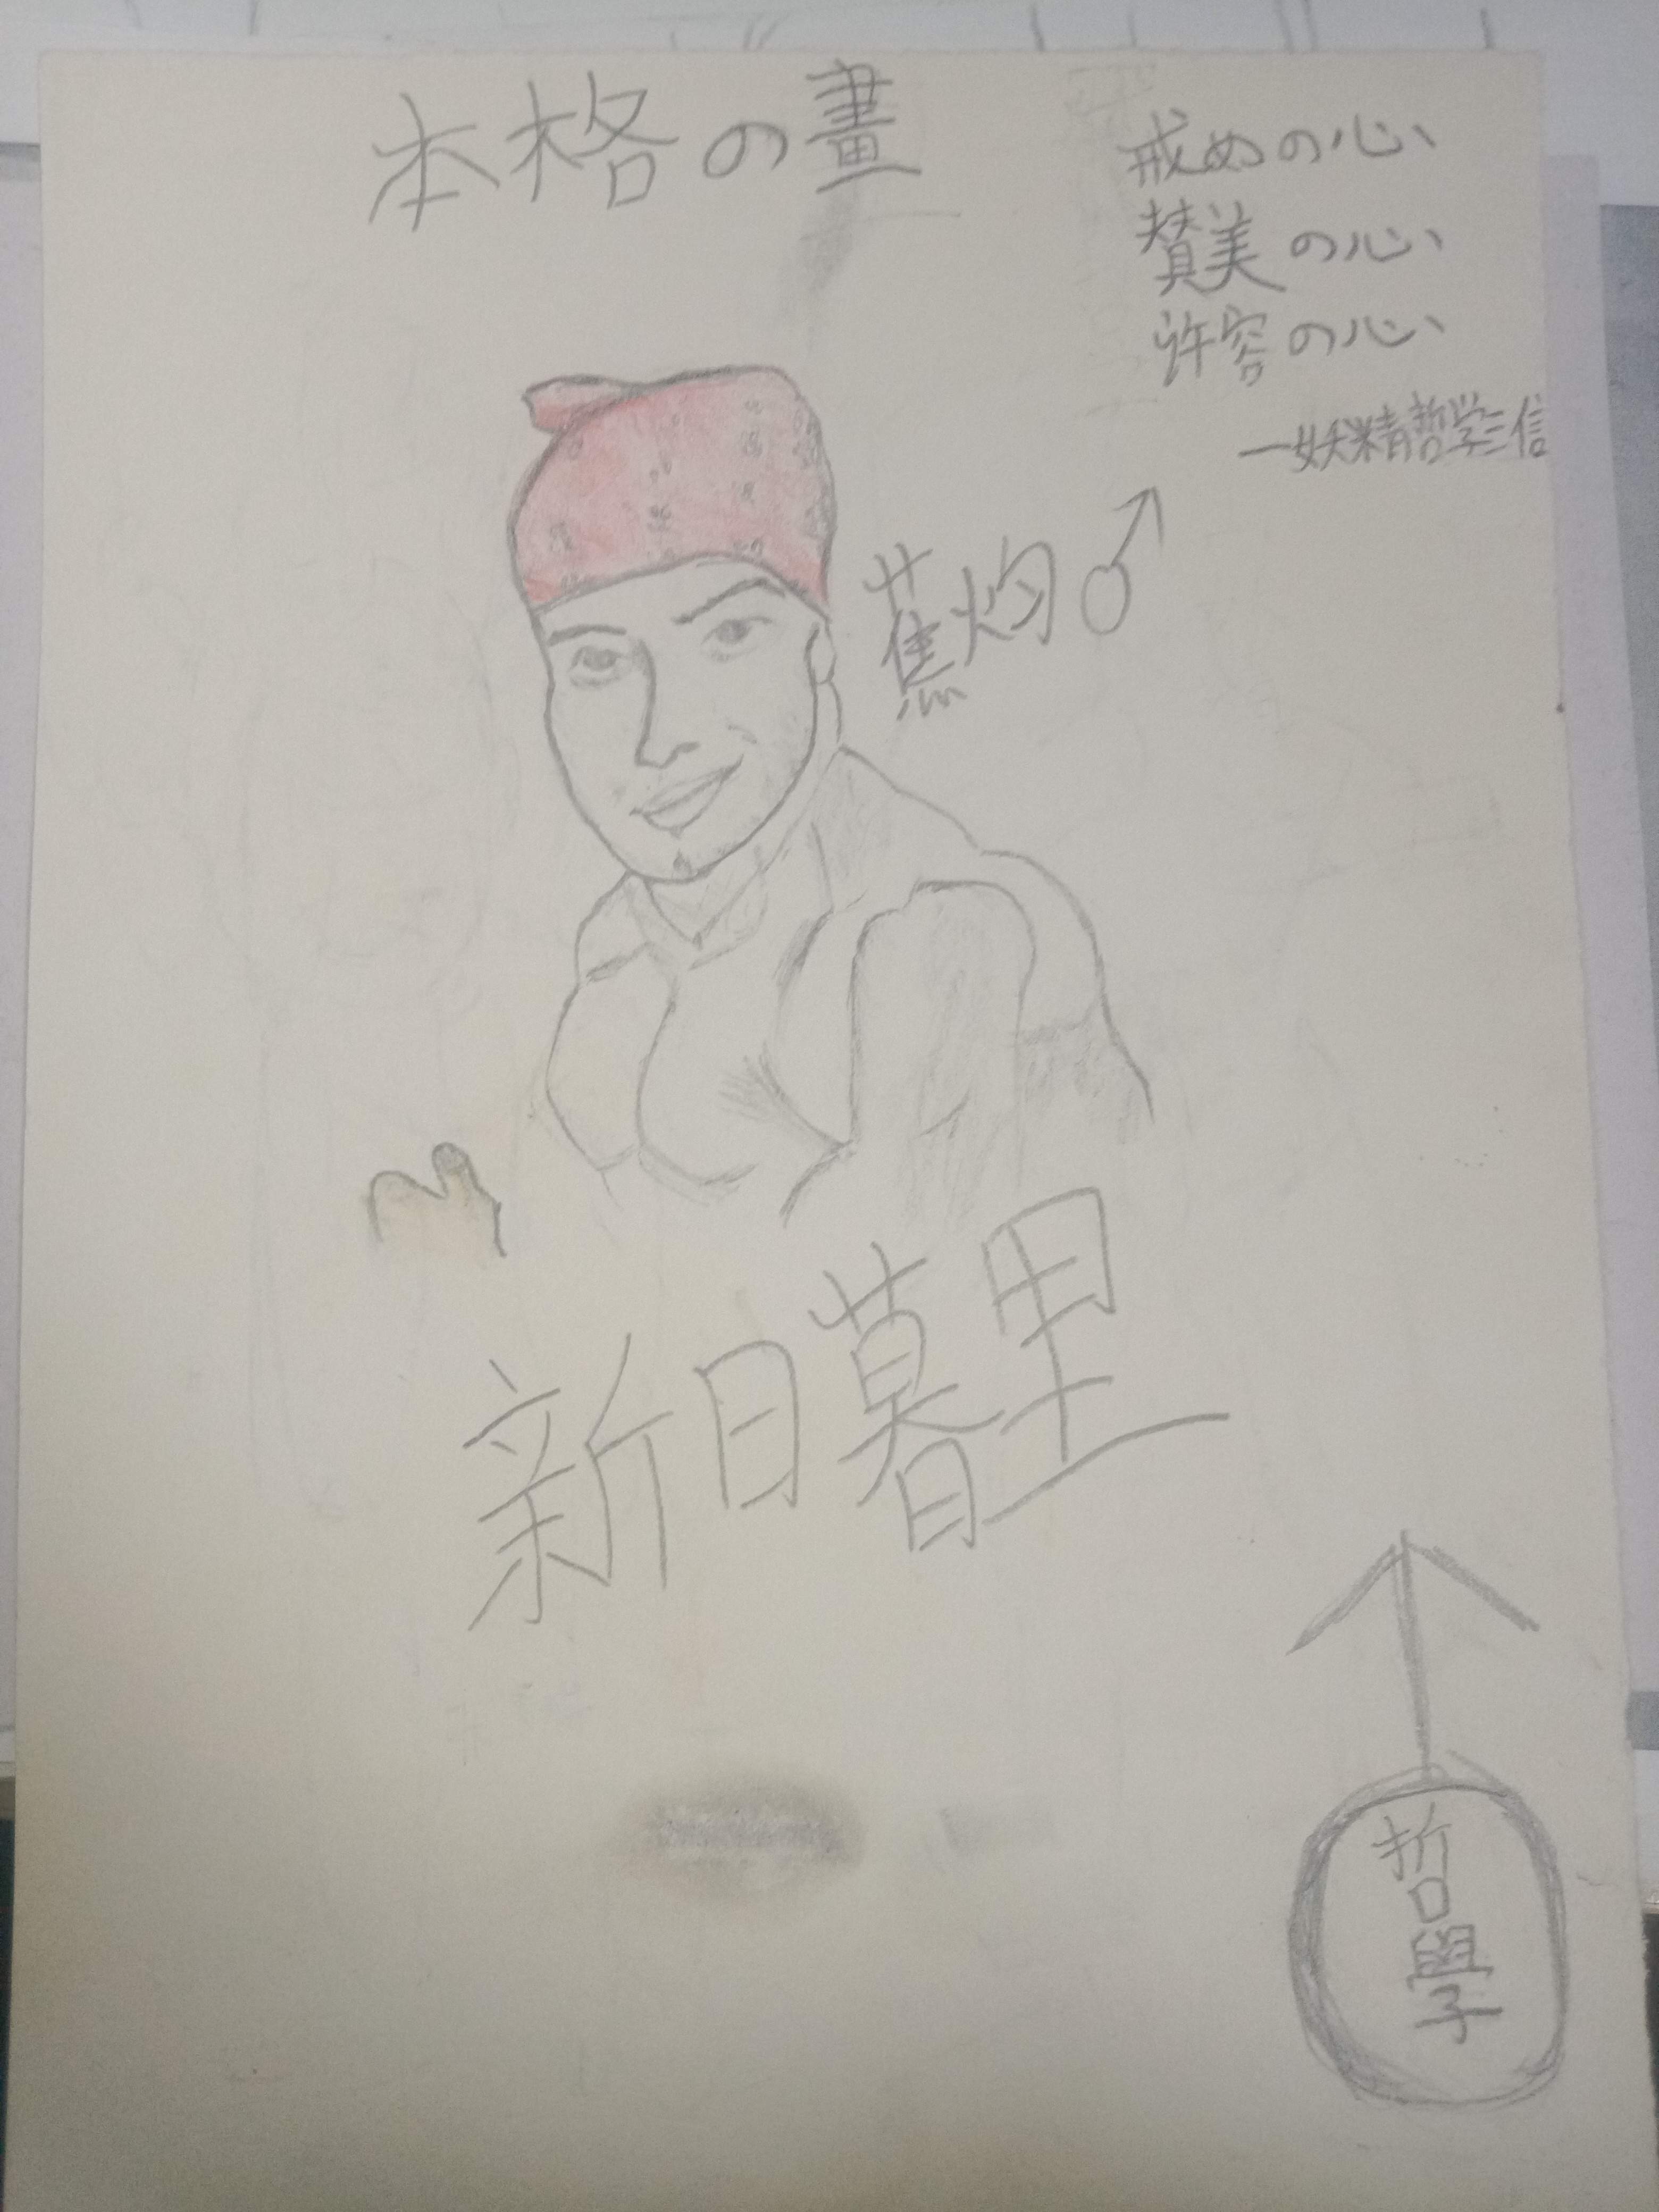 本格の畫
戒めの心
賛美の心
许容の心
一妖精哲学三信
蕉灼♂
新日暮里
哲學